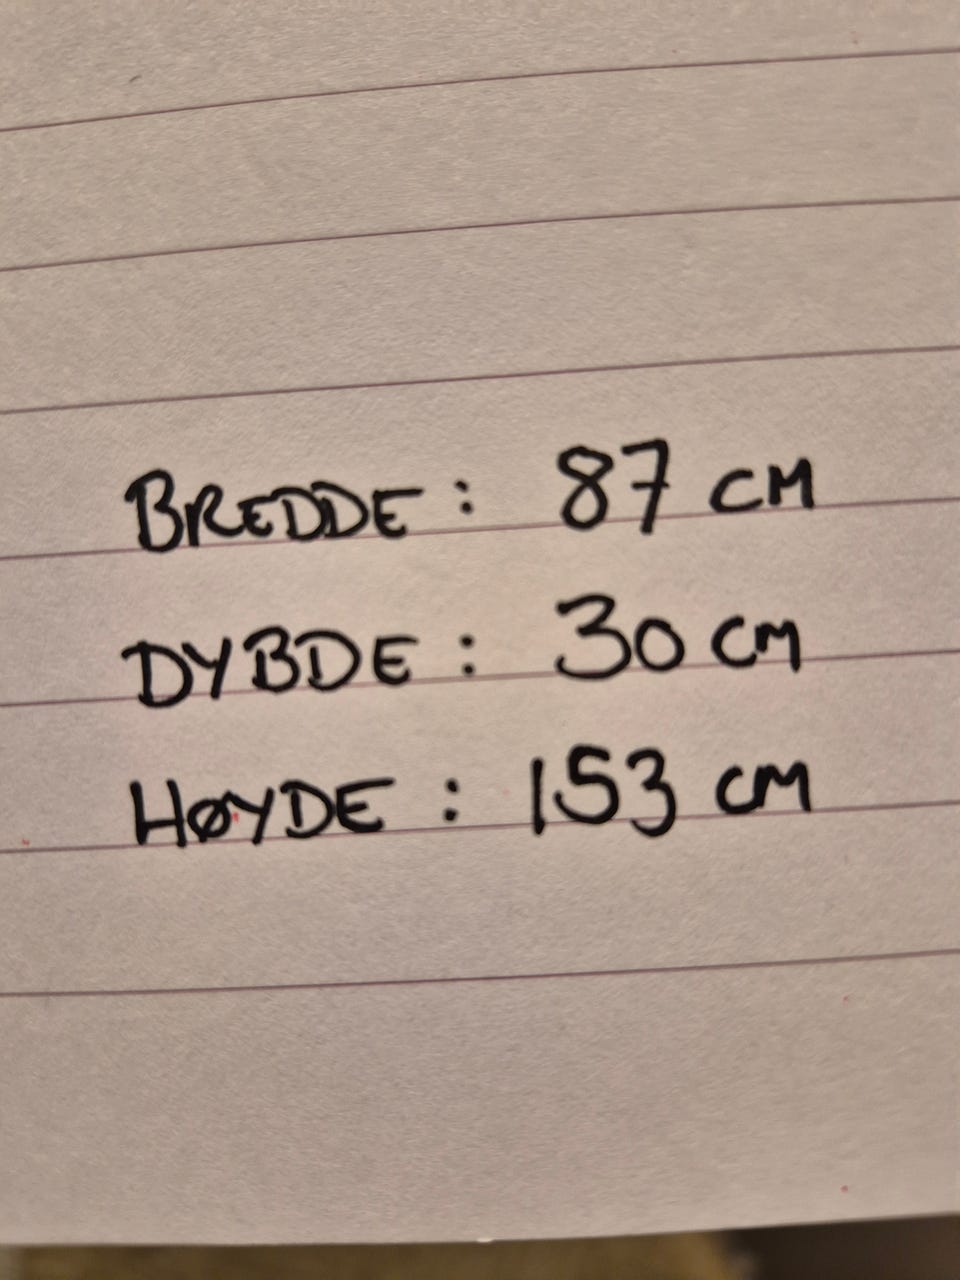 BREDDE: 87 CM
DYBDE: 30 CM
HØYDE: 153 CM